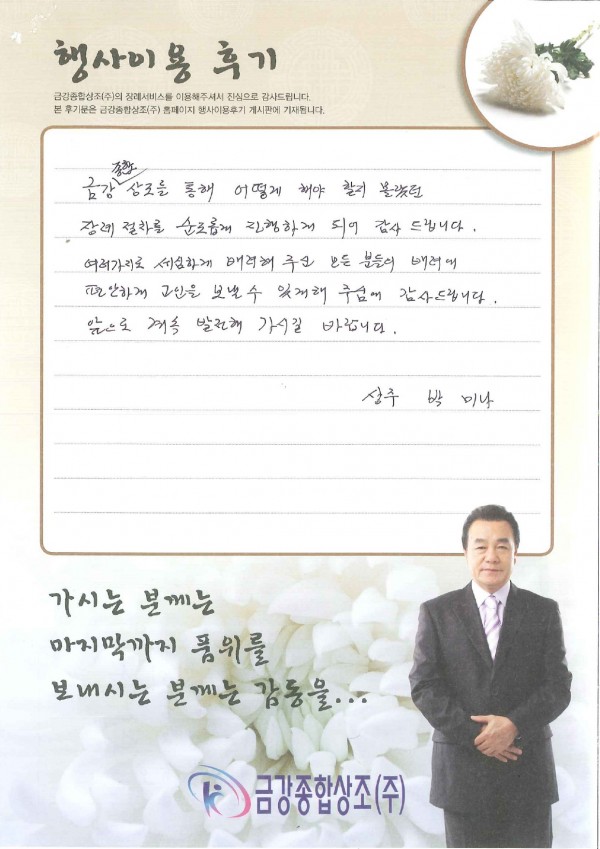 행사이용 후기
금강종합상조(주)의 장례서비스를 이용해주셔서 진심으로 감사드립니다.
본 후기문은 금강종합상조(주) 홈페이지 행사이용후기 게시판에 기재됩니다.
종합
금강 상조를 통해 어떻게 해야 할지 몰랐던
장례 절차를 순조롭게 진행하게 되어 감사 드립니다.
여러가지로 세심하게 배려해 주신 모든 분들의 배려에
편안하게 고인을 보낼 수 있게해 주심에 감사드립니다.
앞으로 계속 발전해 가시길 바랍니다.
상주 박 미나
가시는 분께는
마지막까지 품위를
보내시는 분께는 감동을...
금강종합상조(주)